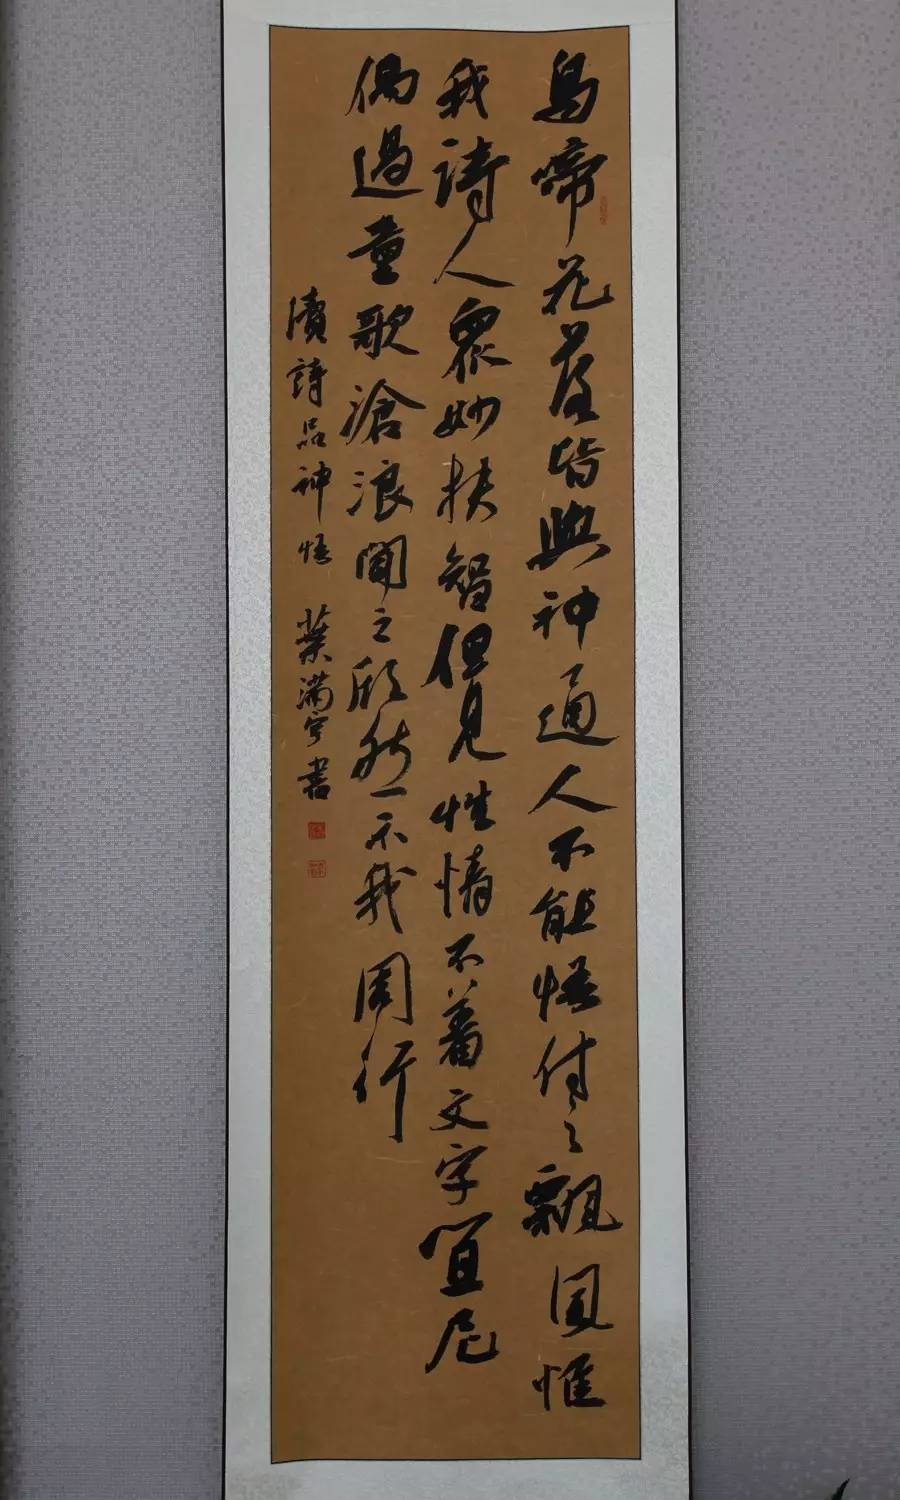 鳥啼花落皆與神通人不能悟付之飄風惟
我詩人眾妙扶智但見性情不著文字宣尼
偶過童歌滄浪聞之欣然示我周行
續詩品神悟 葉滿宇書